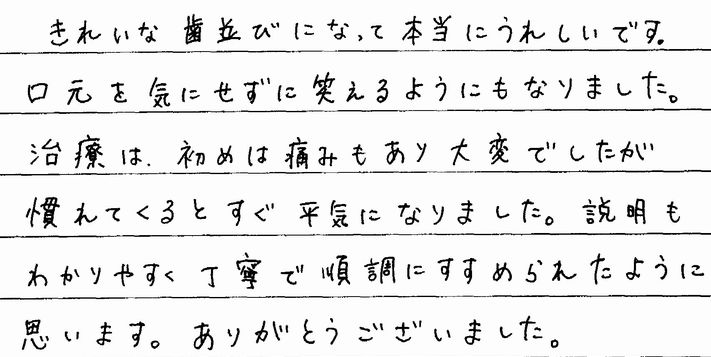 きれいな歯並びになって本当にうれしいです。
口元を気にせずに笑えるようにもなりました。
治療は、初めは痛みもあり大変でしたが
慣れてくるとすぐ平気になりました。説明も
わかりやすく丁寧で順調にすすめられたように
思います。ありがとうございました。